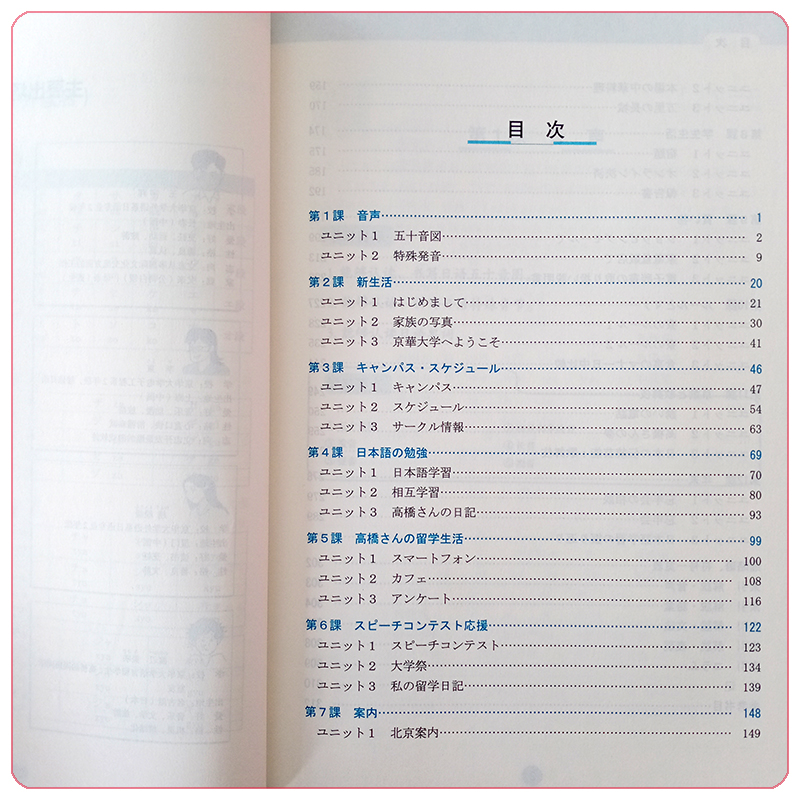 目 次
第１課 音声 1
ユニット１ 五十音図 2
ユニット２ 特殊発音 9
第２課 新生活 20
ユニット１ はじめまして 21
ユニット２ 家族の写真 30
ユニット３ 京華大学へようこそ 41
第３課 キャンパス・スケジュール 46
ユニット１ キャンパス 47
ユニット２ スケジュール 54
ユニット３ サークル情報 63
第４課 日本語の勉強 69
ユニット１ 日本語学習 70
ユニット２ 相互学習 80
ユニット３ 高橋さんの日記 93
第５課 高橋さんの留学生活 99
ユニット１ スマートフォン 100
ユニット２ カフェ 108
ユニット３ アンケート 116
第６課 スピーチコンテスト応援 122
ユニット１ スピーチコンテスト 123
ユニット２ 大学祭 134
ユニット３ 私の留学日記 139
第７課 案内 148
ユニット１ 北京案内 149